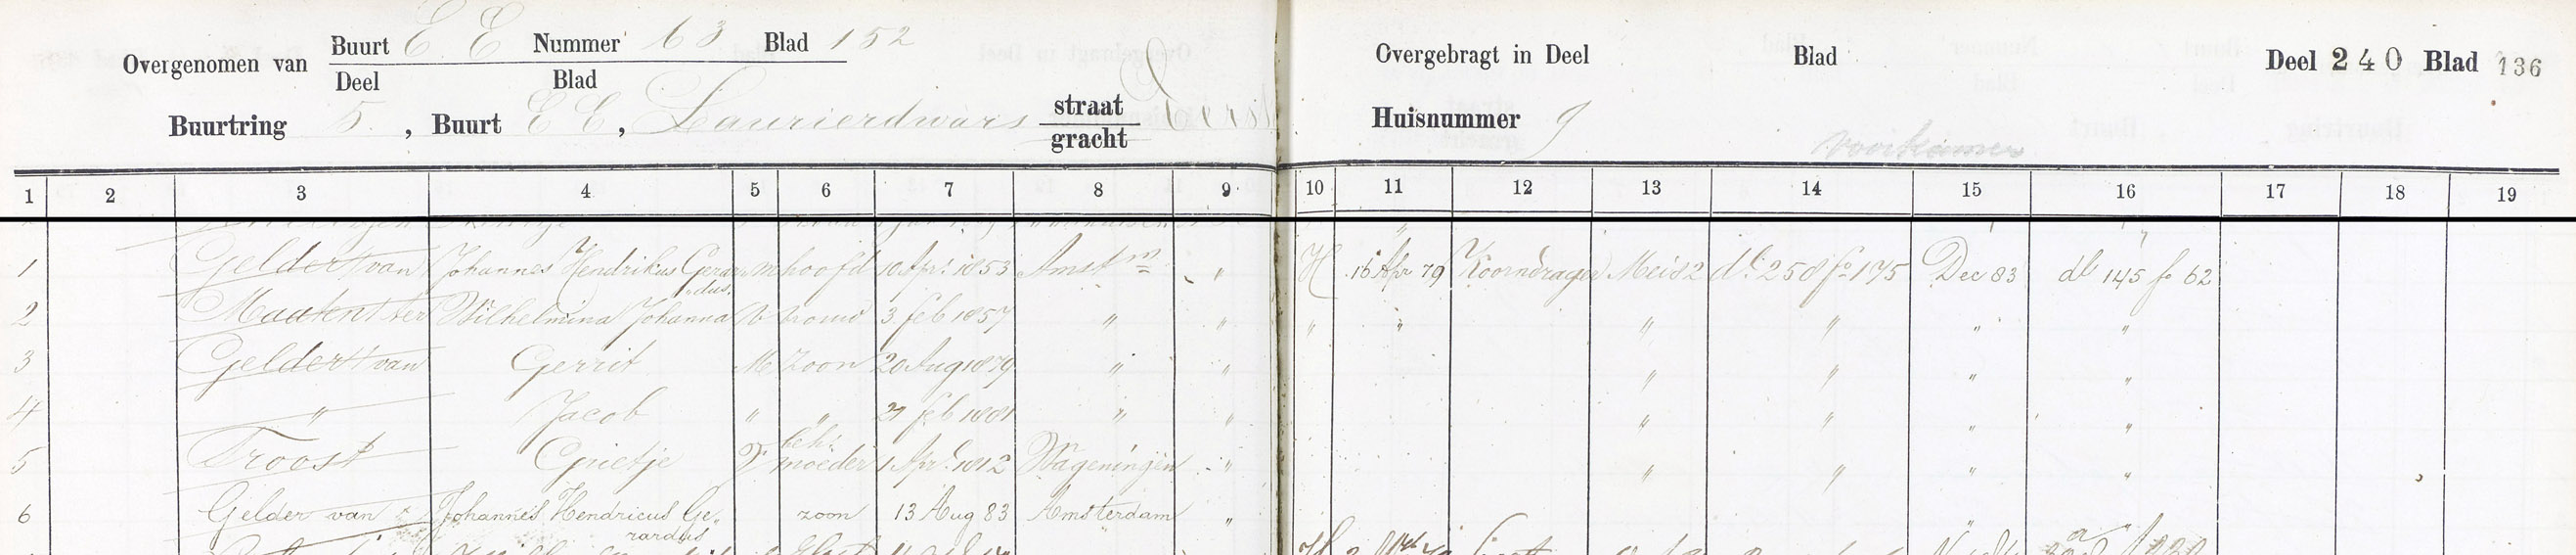 Overgenomen van Buurt E E Nummer 63 Blad 152
Deel Blad
Buurtring 5, Buurt E E, Laurierdwars straat Eerste
gracht
Overgebragt in Deel Blad Deel 240 Blad 136
Huisnummer 9
voorkamer
1 2 3 4 5 6 7 8 9 10 11 12 13 14 15 16 17 18 19
1 Gelder van Johannes Hendrikus Gerar- m hoofd 10 Apr: 1853 Amstm " H 16 Apr 79 Koorndrager Mei 82 dl: 258 fo 175 Dec 83 dl 145 fo 62
dus.
2 Maaten ter Wilhelmina Johanna V vrouw 3 feb 1857 " " " " " " " "
3 Gelder van Gerrit M zoon 20 Aug 1879 " " " " " "
4 " Jacob " " 21 feb 1881 " " " " " "
5 Troost Grietje V beh: moeder 1 Apr: 1812 Wageningen " " " " "
6 Gelder van Johannes Hendricus Ge- zoon 13 Aug 83 Amsterdam " " "
rardus